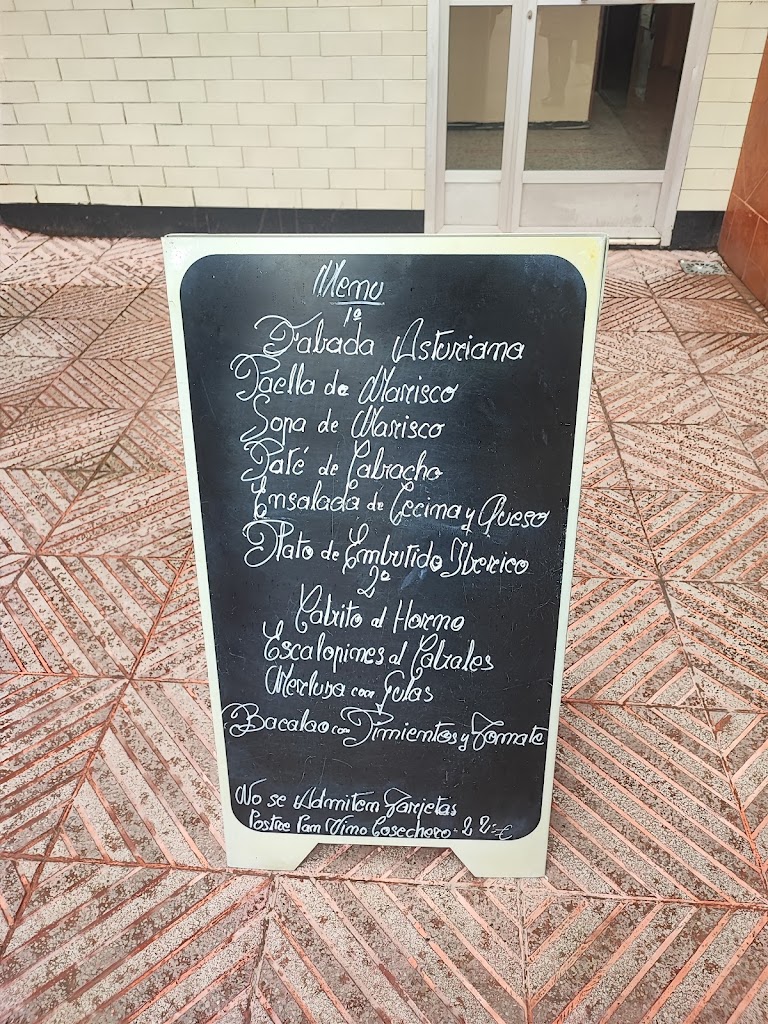 Menu
1º
Fabada Asturiana
Paella de Marisco
Sopa de Marisco
Paté de Cabracho
Ensalada de Cecina y Queso
Plato de Embutido Iberico
2º
Cabrito al Horno
Escalopines al Cabrales
Merluza con Gulas
Bacalao con Pimientos y Tomate
No se Admiten Tarjetas
Postre Pan Vino Cosechero - 22 - €